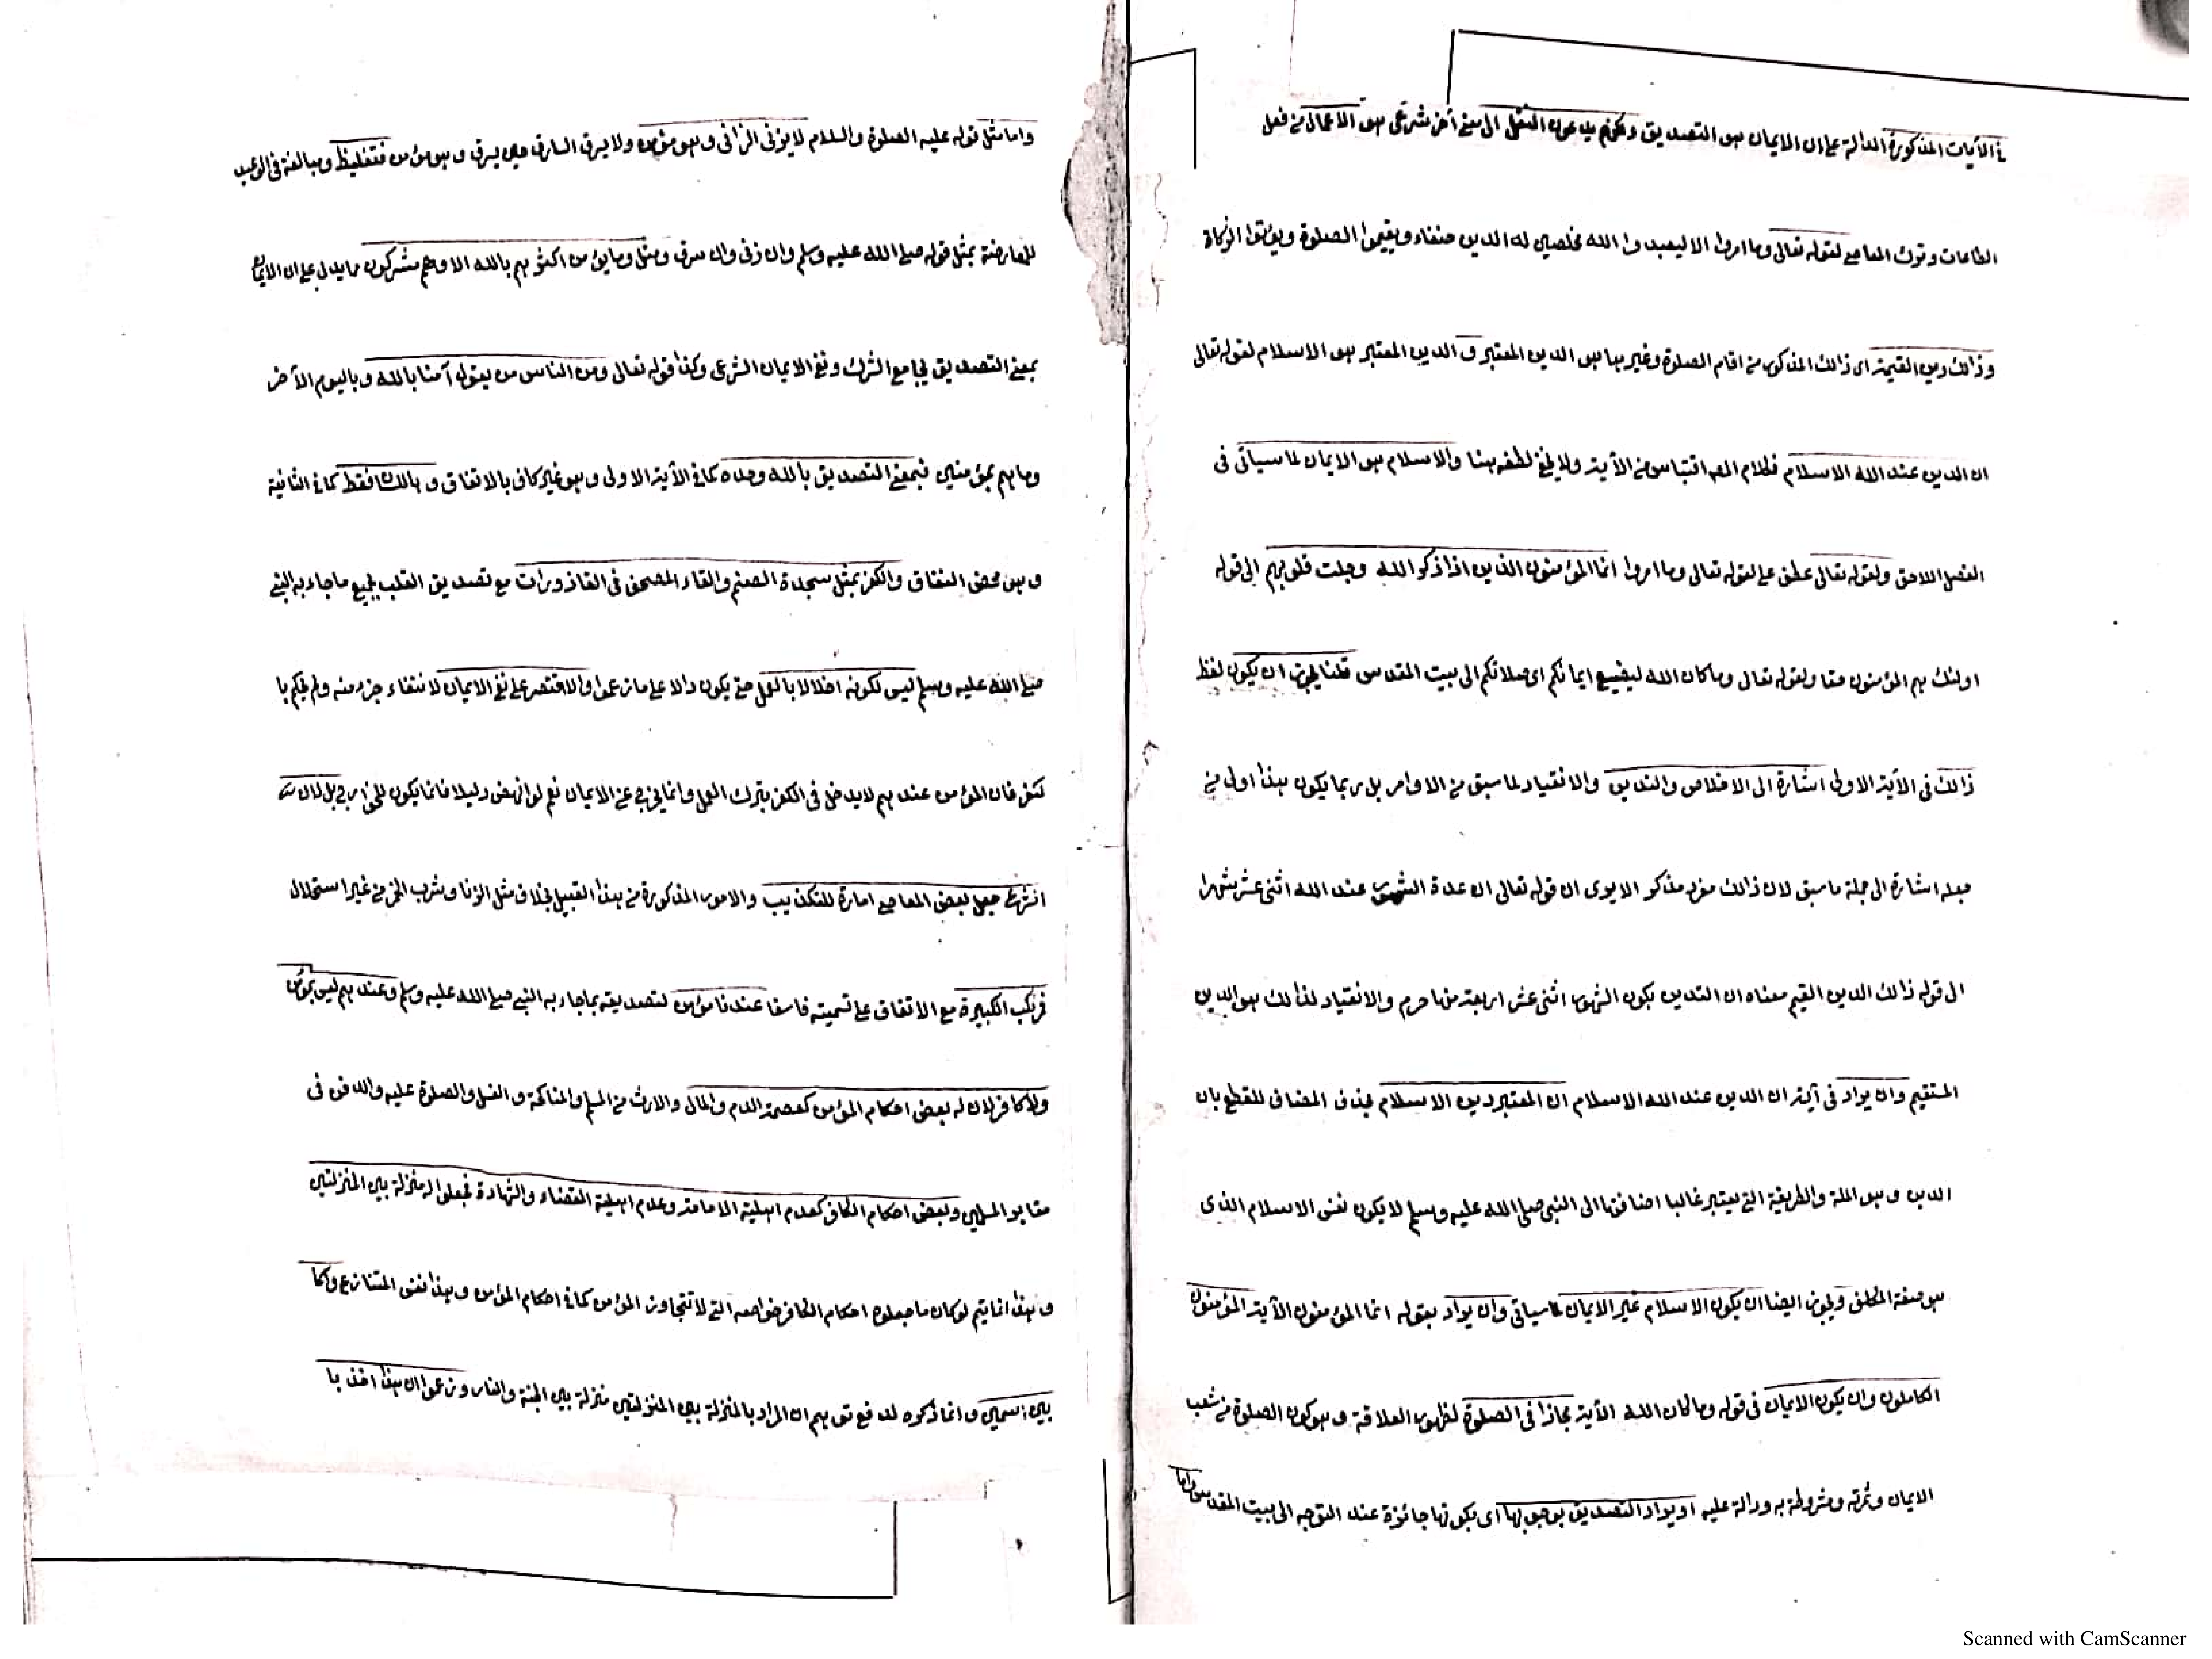 في الآيات المذكورة الدالة على ان الايمان هو التصديق وكونهم يدعون النقل الى معنى آخر شرعي هو الاعمال من فعل
الطاعات وترك المعاصي لقوله تعالى وما امروا الا ليعبدوا الله مخلصين له الدين حنفاء ويقيموا الصلوة ويؤتوا الزكاة
وذالك دين القيمة اى ذالك المذكور من اقام الصلوة وغيرها هو الدين المعتبر و الدين المعتبر هو الاسلام لقوله تعالى
ان الدين عند الله الاسلام فكلام المصـ اقتباس من الآية ولا يخفى لطفه هنا والاسلام هو الايمان لما سياتى فى
الفصل اللاحق ولقوله تعالى عطف على لقوله تعالى وما امروا انما المؤمنون الذين اذا ذكر الله وجلت قلوبهم الى قوله
اولئك هم المؤمنون حقا ولقوله تعالى وما كان الله ليضيع ايمانكم اى صلاتكم الى بيت المقدس قلنا يجوز ان يكون لفظ
ذالك فى الآية الاولى اشارة الى الاخلاص والتدين والانقياد لما سبق من الاوامر بل ربما يكون هذا اولى من
جعله اشارة الى جملة ما سبق لان ذالك مفرد مذكر الا يرى ان قوله تعالى ان عدة الشهور عند الله اثنى عشر شهرا
الى قوله ذالك الدين القيم معناه ان التدين بكون الشهور اثنى عشر اربعة منها حرم والانقياد لذالك هو الدين
المستقيم وان يراد فى آية ان الدين عند الله الاسلام ان المعتبر دين الاسلام بحذف المضاف للقطع بان
الدين وهو الملة والطريقة التى يعتبر غالبا اضافتها الى النبى صلى الله عليه وسلم لا يكون نفس الاسلام الذى
هو صفة المكلف ويجوز ايضا ان يكون الاسلام غير الايمان لما سياتى وان يراد بقوله انما المؤمنون الآية المؤمنون
الكاملون وان يكون الايمان فى قوله وما كان الله الآية مجازا فى الصلوة لظهور العلاقة وهو كون الصلوة من شعب
الايمان وثمرته ومشروطة به ودالة عليه او يراد التصديق بوجوبها اى بكونها جائزة عند التوجه الى بيت المقدس واما
واما مثل قوله عليه الصلوة والسلام لا يزنى الزانى وهو مؤمن ولا يسرق السارق حين يسرق وهو مؤمن فتغليظ ومبالغة فى الوعيد
للمعارضة بمثل قوله صلى الله عليه وسلم وان زنى وان سرق ومثل وما يؤمن اكثرهم بالله الا وهم مشركون مما يدل على ان الايمان
بمعنى التصديق يجامع الشرك ونفى الايمان الشرعى وكذا قوله تعالى ومن الناس من يقول آمنا بالله وباليوم الآخر
وما هم بمؤمنين فبمعنى التصديق بالله وحده كما فى الآية الاولى وهو غير كاف بالاتفاق و باللسان فقط كما فى الثانية
وهو محض النفاق والكفر بمثل سجدة الصنم والقاء المصحف فى القاذورات مع تصديق القلب بجميع ما جاء به النبى
صلى الله عليه وسلم ليس لكونه اخلالا بالعمل حتى يكون دالا على ما زعموا والا اقتصر على نفى الايمان لانتفاء جزء منه ولم يحكم با
لكفر فان المؤمن عندهم لا يدخل فى الكفر بترك العمل وانما يخرج عن الايمان نعم لو انهض دليلا فانما يكون للخوارج بل لان
الشرع جعل بعض المعاصى امارة للتكذيب والامور المذكورة من هذا القبيل بخلاف مثل الزنا وشرب الخمر من غير استحلال
فمرتكب الكبيرة مع الاتفاق على تسميته فاسقا عندنا مؤمن لتصديقه بما جاء به النبى صلى الله عليه وسلم وعندهم ليس بمؤمن
ولا كافر لان له بعض احكام المؤمن كعصمة الدم والمال والارث من المسلم والمناكحة والغسل والصلوة عليه والدفن فى
مقابر المسلمين وبعض احكام الكافر كعدم اهلية الامامة وعدم اهلية القضاء والشهادة فجعلوا له منزلة بين المنزلتين
وهذا انما يتم لو كان ما جعلوه احكام الكافر خواصه التى لا تتجاوز المؤمن كما فى احكام المؤمن وهذا نفس المتنازع
بين اسمين وانما ذكره لدفع توهم ان المراد بالمنزلة بين المنزلتين منزلة بين الجنة والنار وزعموا ان هذا اخذ با